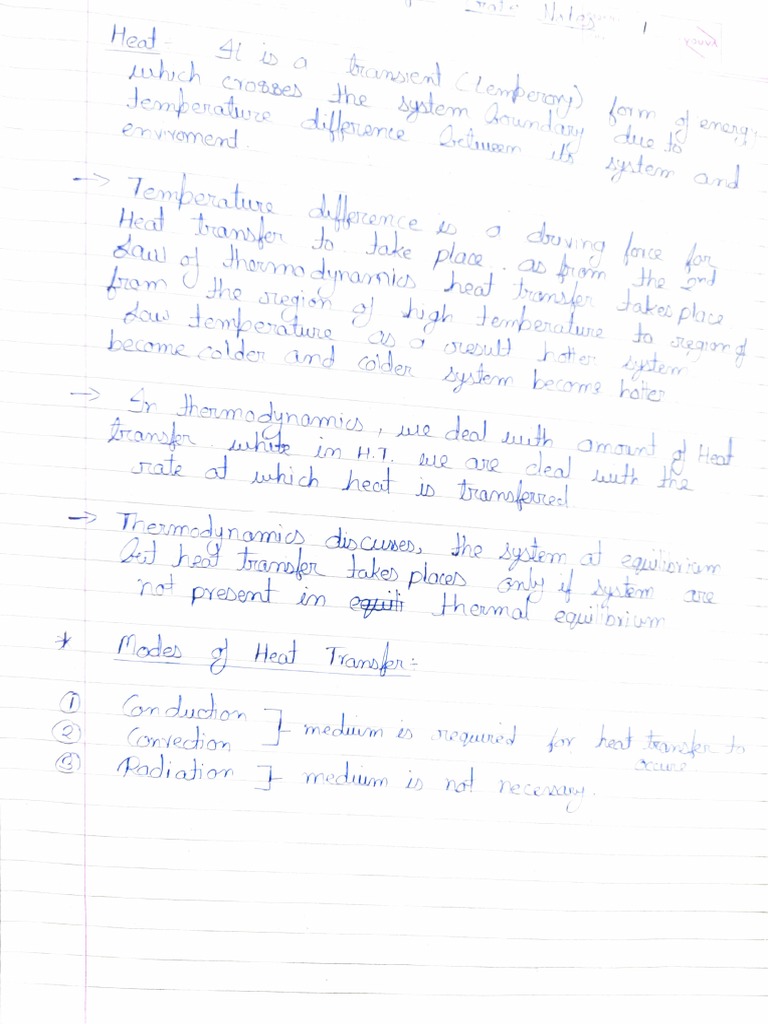 1
Heat - It is a transient (temperory) form of energy
which crosses the system boundary due to
temperature difference between its system and
enviroment.
→ Temperature difference is a driving force for
Heat transfer to take place. as from the 2nd
Law of thermodynamics heat transfer takes place
from the region of high temperature to region of
Low temperature as a result hotter system
become colder and colder system become hotter.
→ In thermodynamics, we deal with amount of Heat
transfer while in H.T. we are deal with the
rate at which heat is transferred
→ Thermodynamics discusses, the system at equilibrium
but heat transfer takes places only if system are
not present in equili thermal equilibrium
* Modes of Heat Transfer:-
① Conduction ]- medium is required for heat transfer to
② Convection occure.
③ Radiation ]- medium is not necessary.